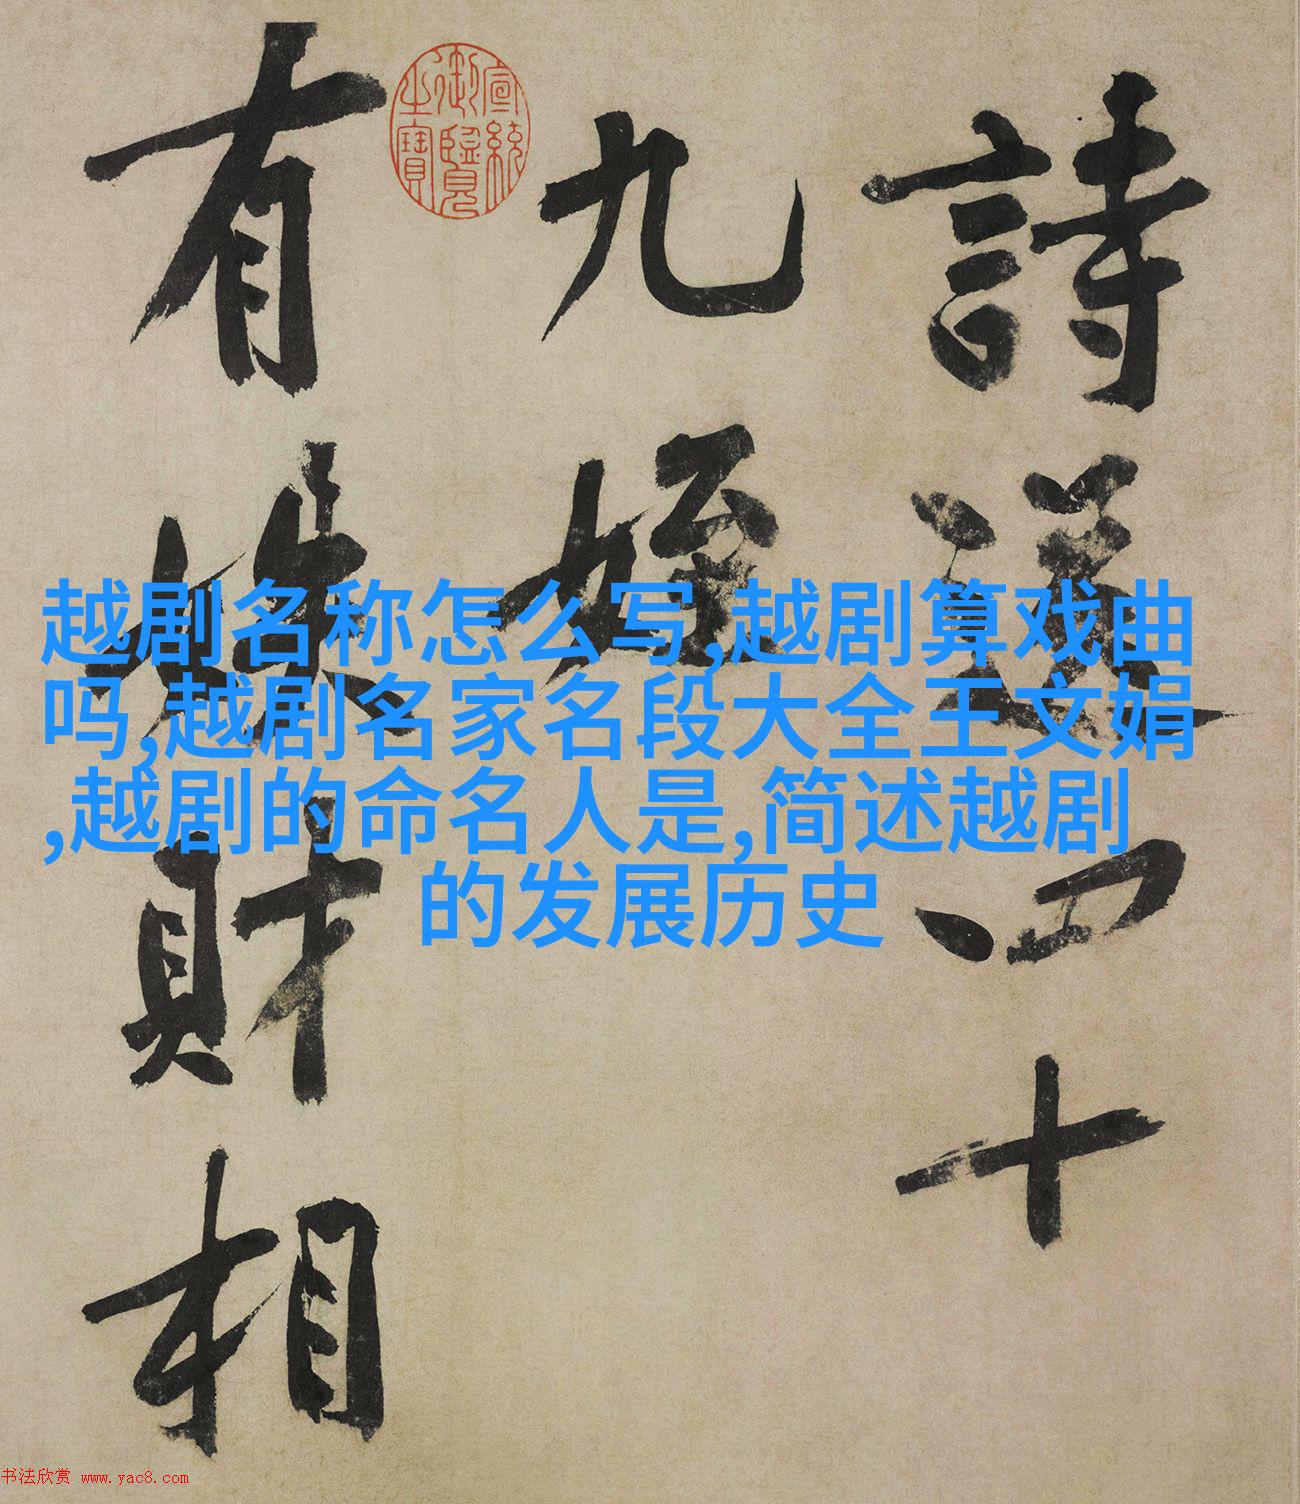 詩送四十
九姪
有財相
宣統御覽之寶
越剧名称怎么写,越剧算戏曲
吗,越剧名家名段大全王文娟
,越剧的命名人是,简述越剧
的发展历史
书法欣赏 www.yac8.com